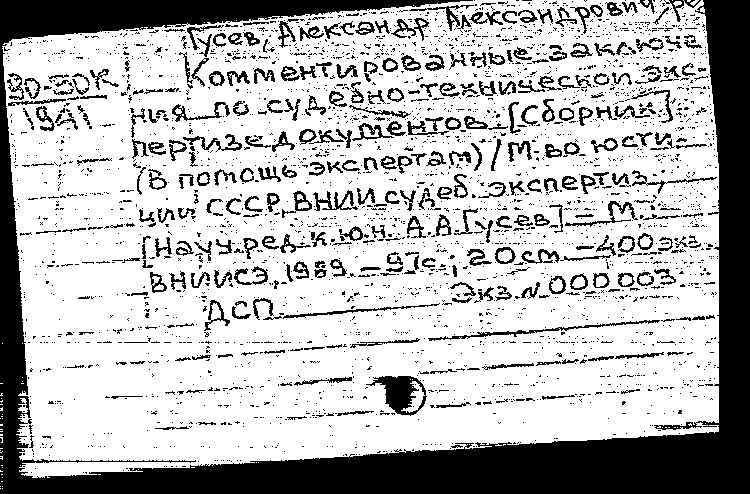 Гусев, Александр Александрович, ре
90-30к
1941
Комментированные заключе
ния по судебно-технической экс-
пертизе документов: [Сборник]
(В помощь экспертам) / М-во юсти-
ции СССР, ВНИИ судеб. экспертиз;
[Науч. ред. к.ю.н. А.А. Гусев] – М.:
ВНИИСЭ, 1989. – 97с.; 20 см. – 400 экз.
ДСП. Экз. № 000003